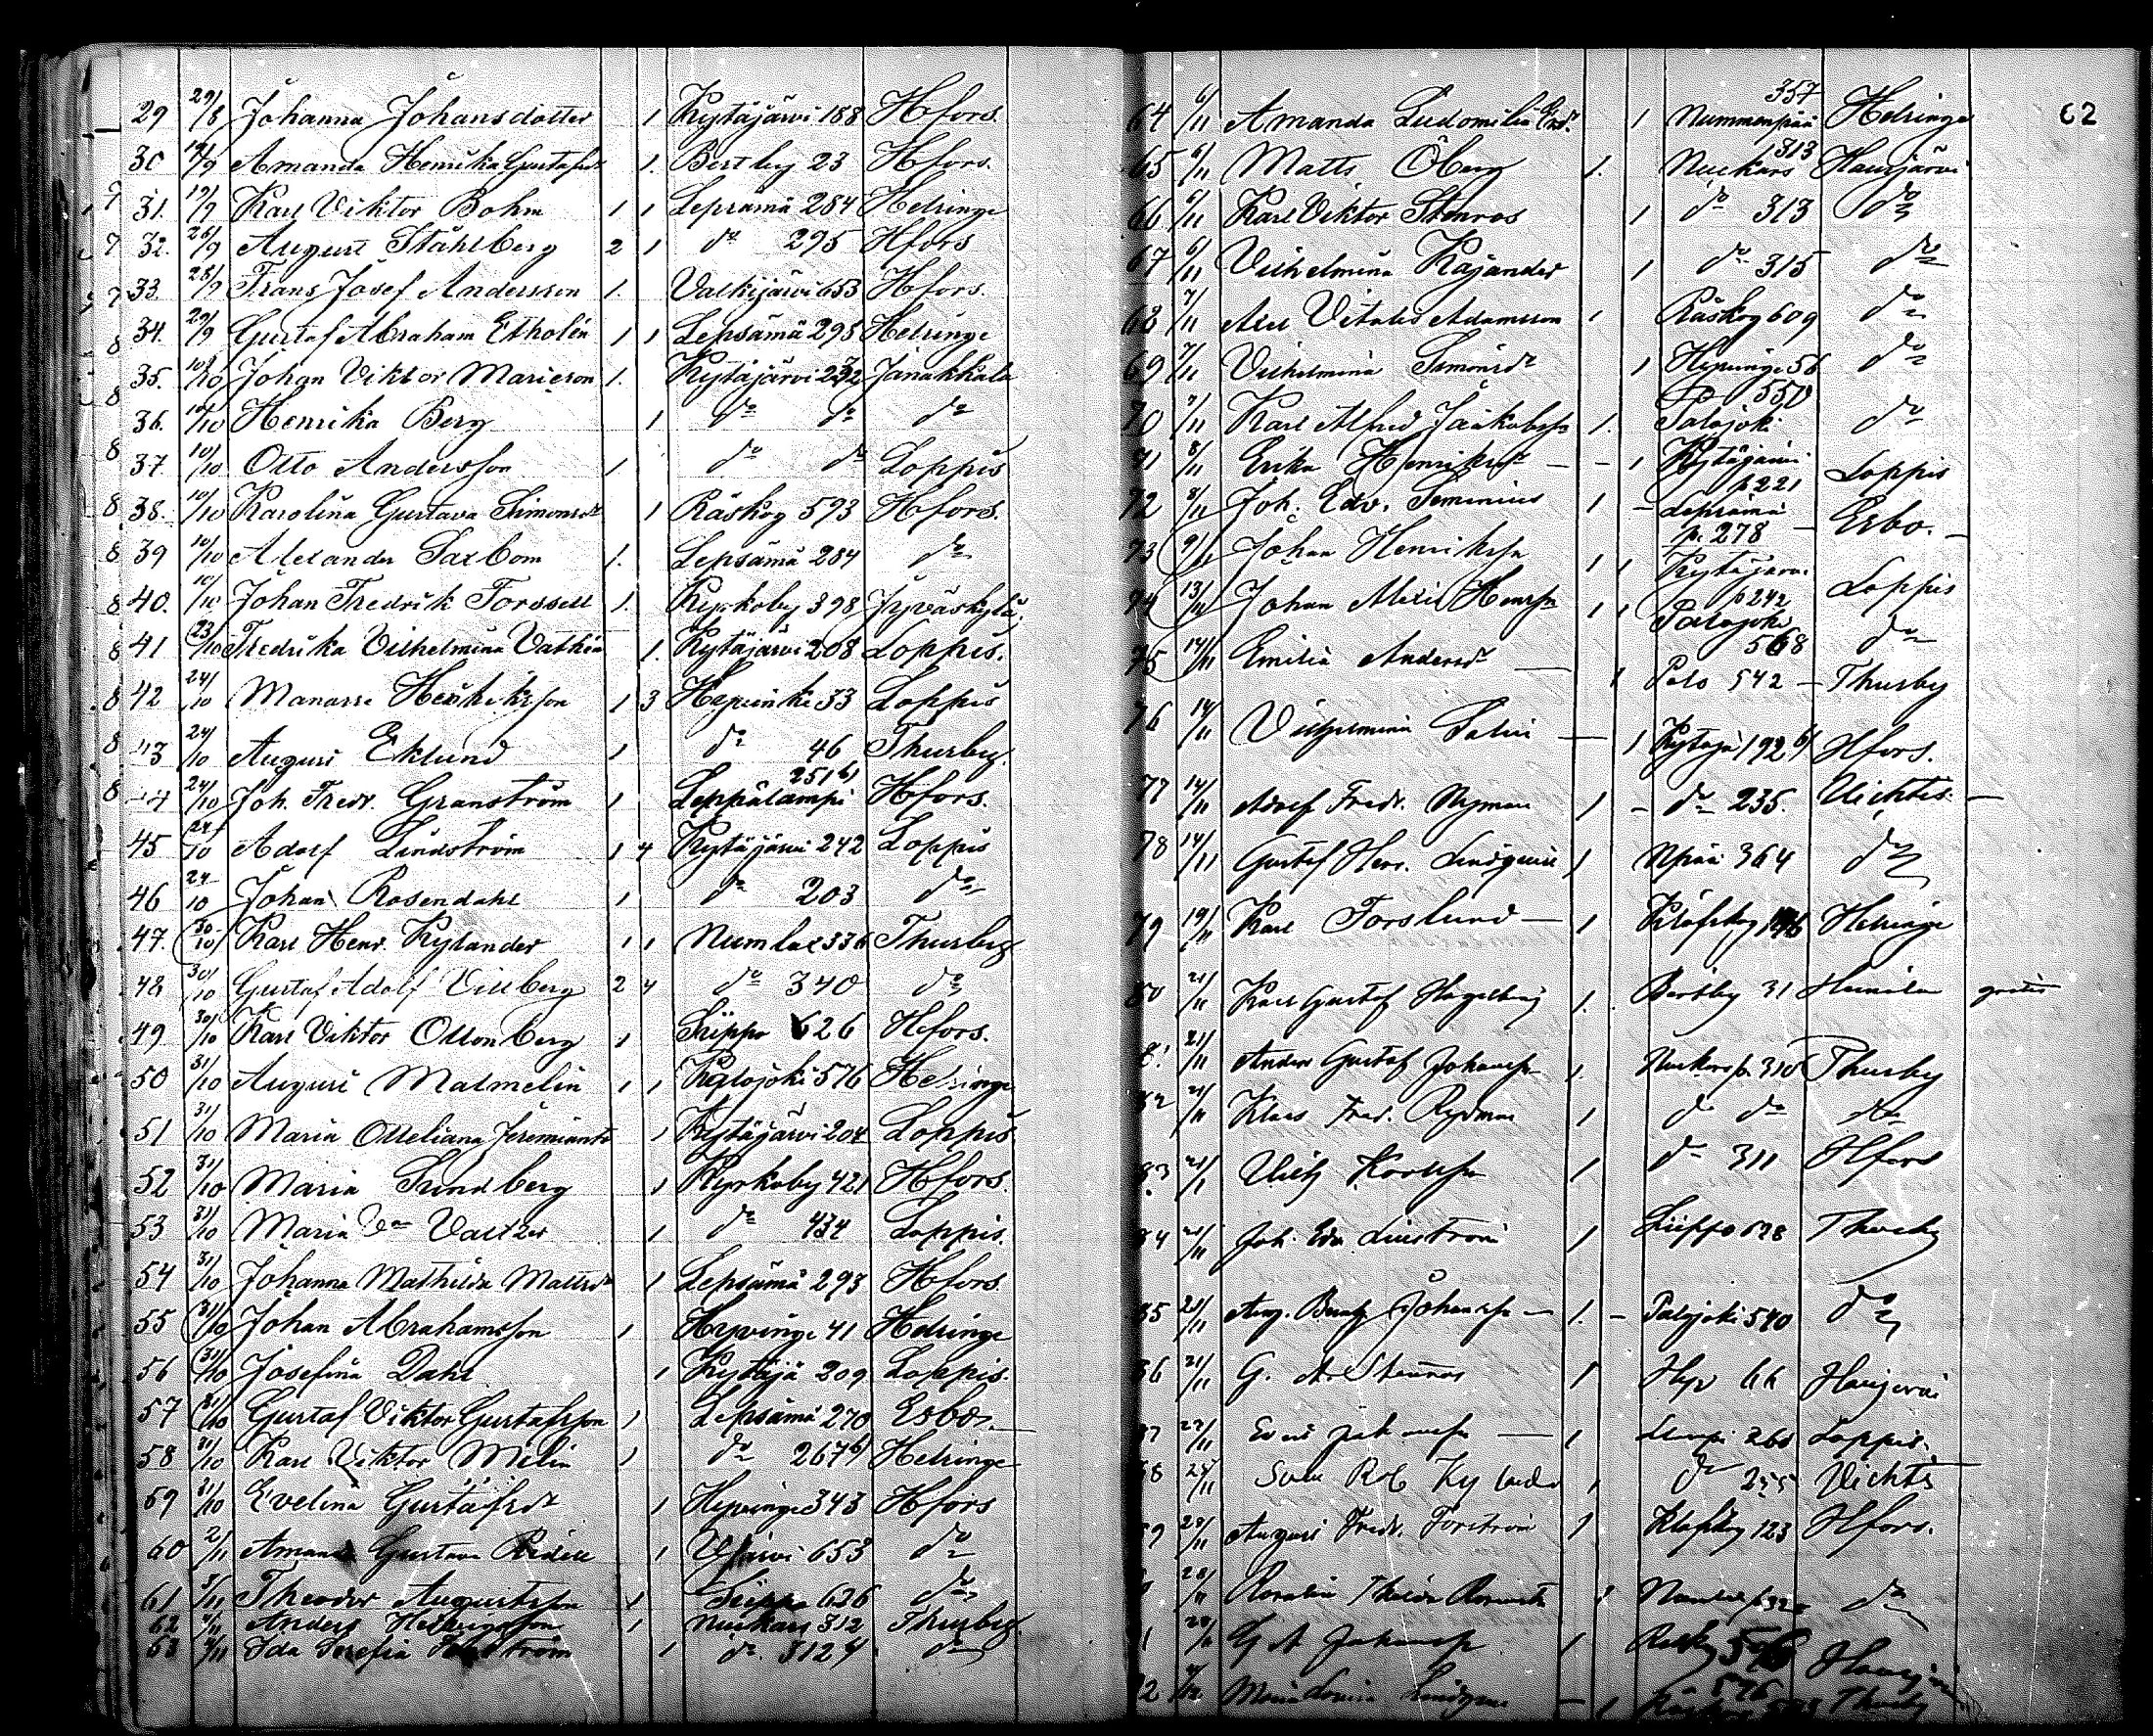 29 29/8 Johanna Johansdotter 1 Kytäjärvi 188 Hfors.
30 19/9 Amanda Henrika Gustafsdr 1. Bertby 23 Hfors.
31. 19/9 Karl Viktor Bohm 1 1 Lepsämä 284 Helsinge
32. 26/9 August Ståhlberg 2 1 do 295 Hfors
33 28/9 Frans Josef Andersson 1. Valkijärvi 653 Hfors.
34. 29/9 Gustaf Abraham Etholén 1 1 Lepsämä 295 Helsinge
35. 10/10 Johan Viktor Mariesson 1. Kytäjärvi 232 Janakkala
36. 10/10 Henrika Berg 1 do do do
37. 10/10 Otto Andersson 1. do do Loppis
38. 10/10 Karolina Gustava Simonsdr 1 Råskog 593 Hfors.
39 10/10 Alexander Saxbom 1. Lepsämä 284 do
40. 10/10 Johan Fredrik Forssell 1. Kyrkoby 398 Jyväskylä.
41 23/10 Fredrika Vilhelmina Vathén 1. Kytäjärvi 208 Loppis.
42 24/10 Manasse Henriksson 1 3 Hyvinke 33 Loppis
43 24/10 August Eklund 1 do 46 Thusby.
44 24/10 Joh. Fredr. Granström 1 Leppälampi 251 Hfors.
45 24/10 Adolf Lindström 1 4 Kytäjärvi 242 Loppis
46 24/10 Johan Rosendahl 1 do 203 do
47. 30/10 Karl Henr. Kylander 1 1 Numlax 336 Thusby
48 30/10 Gustaf Adolf Villberg 2 4 do 340 do
49 30/10 Karl Viktor Ottonberg 1 Siippo 626 Hfors.
50 31/10 August Malmelin 1 1 576 Helsinge
51 31/10 Maria Otteliana 1 Kytäjärvi 204 Loppis
52 31/10 Maria Sundberg 1 Kyrkoby 421 Hfors.
53 31/10 Maria Valtzer 1 do 434 Loppis.
54 31/10 Johanna Mathilda Mattsdr 1 Lepsämä 293 Hfors.
55 31/10 Johan Abrahamsson 1 Hyvinge 41 Helsinge
56 31/10 Josefina Dahl 1 Kytäjä 209 Loppis.
57 31/10 Gustaf Viktor Gustafsson 1 Lepsämä 270 Esbo
58 31/10 Karl Viktor Melin 1 do 267 Helsinge
59 31/10 Evelina Gustafsdr 1 Hyvinge 343 Hfors
60 2/11 Gustava 1 Vjärvi 653 do
61 3/11 Theodor Augustsson 1 Siippo 636 do
62 4/11 Anders 1 Nuckars 312 Thusby.
63 4/11 Ida Sofia 1 do 312 do
62
64 6/11 Amanda Ludomilia 1 Nummenpää 357 Helsinge
65 6/11 Matts Öberg 1. Nuckars 313 Hausjärvi
66 6/11 Karl Viktor Stenros 1 do 313 do
67 6/11 Vilhelmina Kajander 1 do 315 do
68 7/11 Axel Vitalis Adamsson 1 Råskog 609 do
69 7/11 Vilhelmina Simonsdr 1 Hyvinge 56 do
70 7/11 Karl Alfred Jaakobsson 1. Palojoki 550 do
71 8/11 Erika Henriksdr 1 Kytäjärvi p 221 Loppis
72 8/11 Joh. Edv. 1 Lepsämä p. 278 Esbo.
73 9/11 Johan Henriksson 1 1 Kytäjärvi p 242 Loppis
74 13/11 Johan Alexis 1 1 Palojoki 568 do
75 14/11 Emilia Andersdr 1 Palo 542 Thusby
76 14/11 Vilhelmina 1 Kytäjä 192 Hfors.
77 14/11 Adolf Fredr. Nyman 1 do 235. Vichtis
78 14/11 Gustaf Herr. Lindqvist 1 Npää 364 do
79 19/11 Karl Forslund 1 Klöfskog Helsinge
80 21/11 Karl Gustaf Hagelberg 1. Bertby 31 gratis
21/11 Anders Gustaf Johansson 1. Nuckars p. 310 Thusby
82 21/11 Klas Fred. Rydman 1 do do do
83 21/11 1 do 311 Hfors
84 21/11 Joh. Edv. 1 Siippo 628 Thusby
85 21/11 Aug. Johansson 1. Palojoki 540 do
86 21/11 G. A. Stenros 1 Hyv 66 Hausjärvi
87 1 Loppis.
88 25/11 Rob 1 do 255 Vichtis
89 28/11 August Fredr. Forström 1 Klöfskog 123 Hfors.
28/11 Rosalia do
28/11 G A Johansson 1
Maria Lovisa 1 Thusby